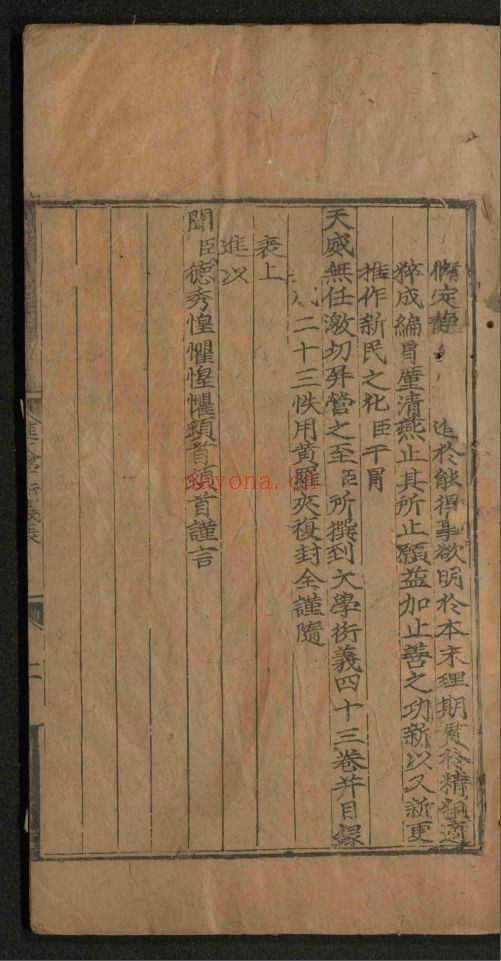 脩定靜 迨於能得事欲明於本末理期貫於精粗適
粹成編冒塵清燕止其所止願益加止善之功新以又新更
推作新民之化臣干冒
天威無任激切屏營之至臣所撰到大學衍義四十三卷并目錄
二十三帙用黄羅夾複封全謹隨
表上
進以
聞臣德秀惶懼惶懼頓首頓首謹言
nayona.cn